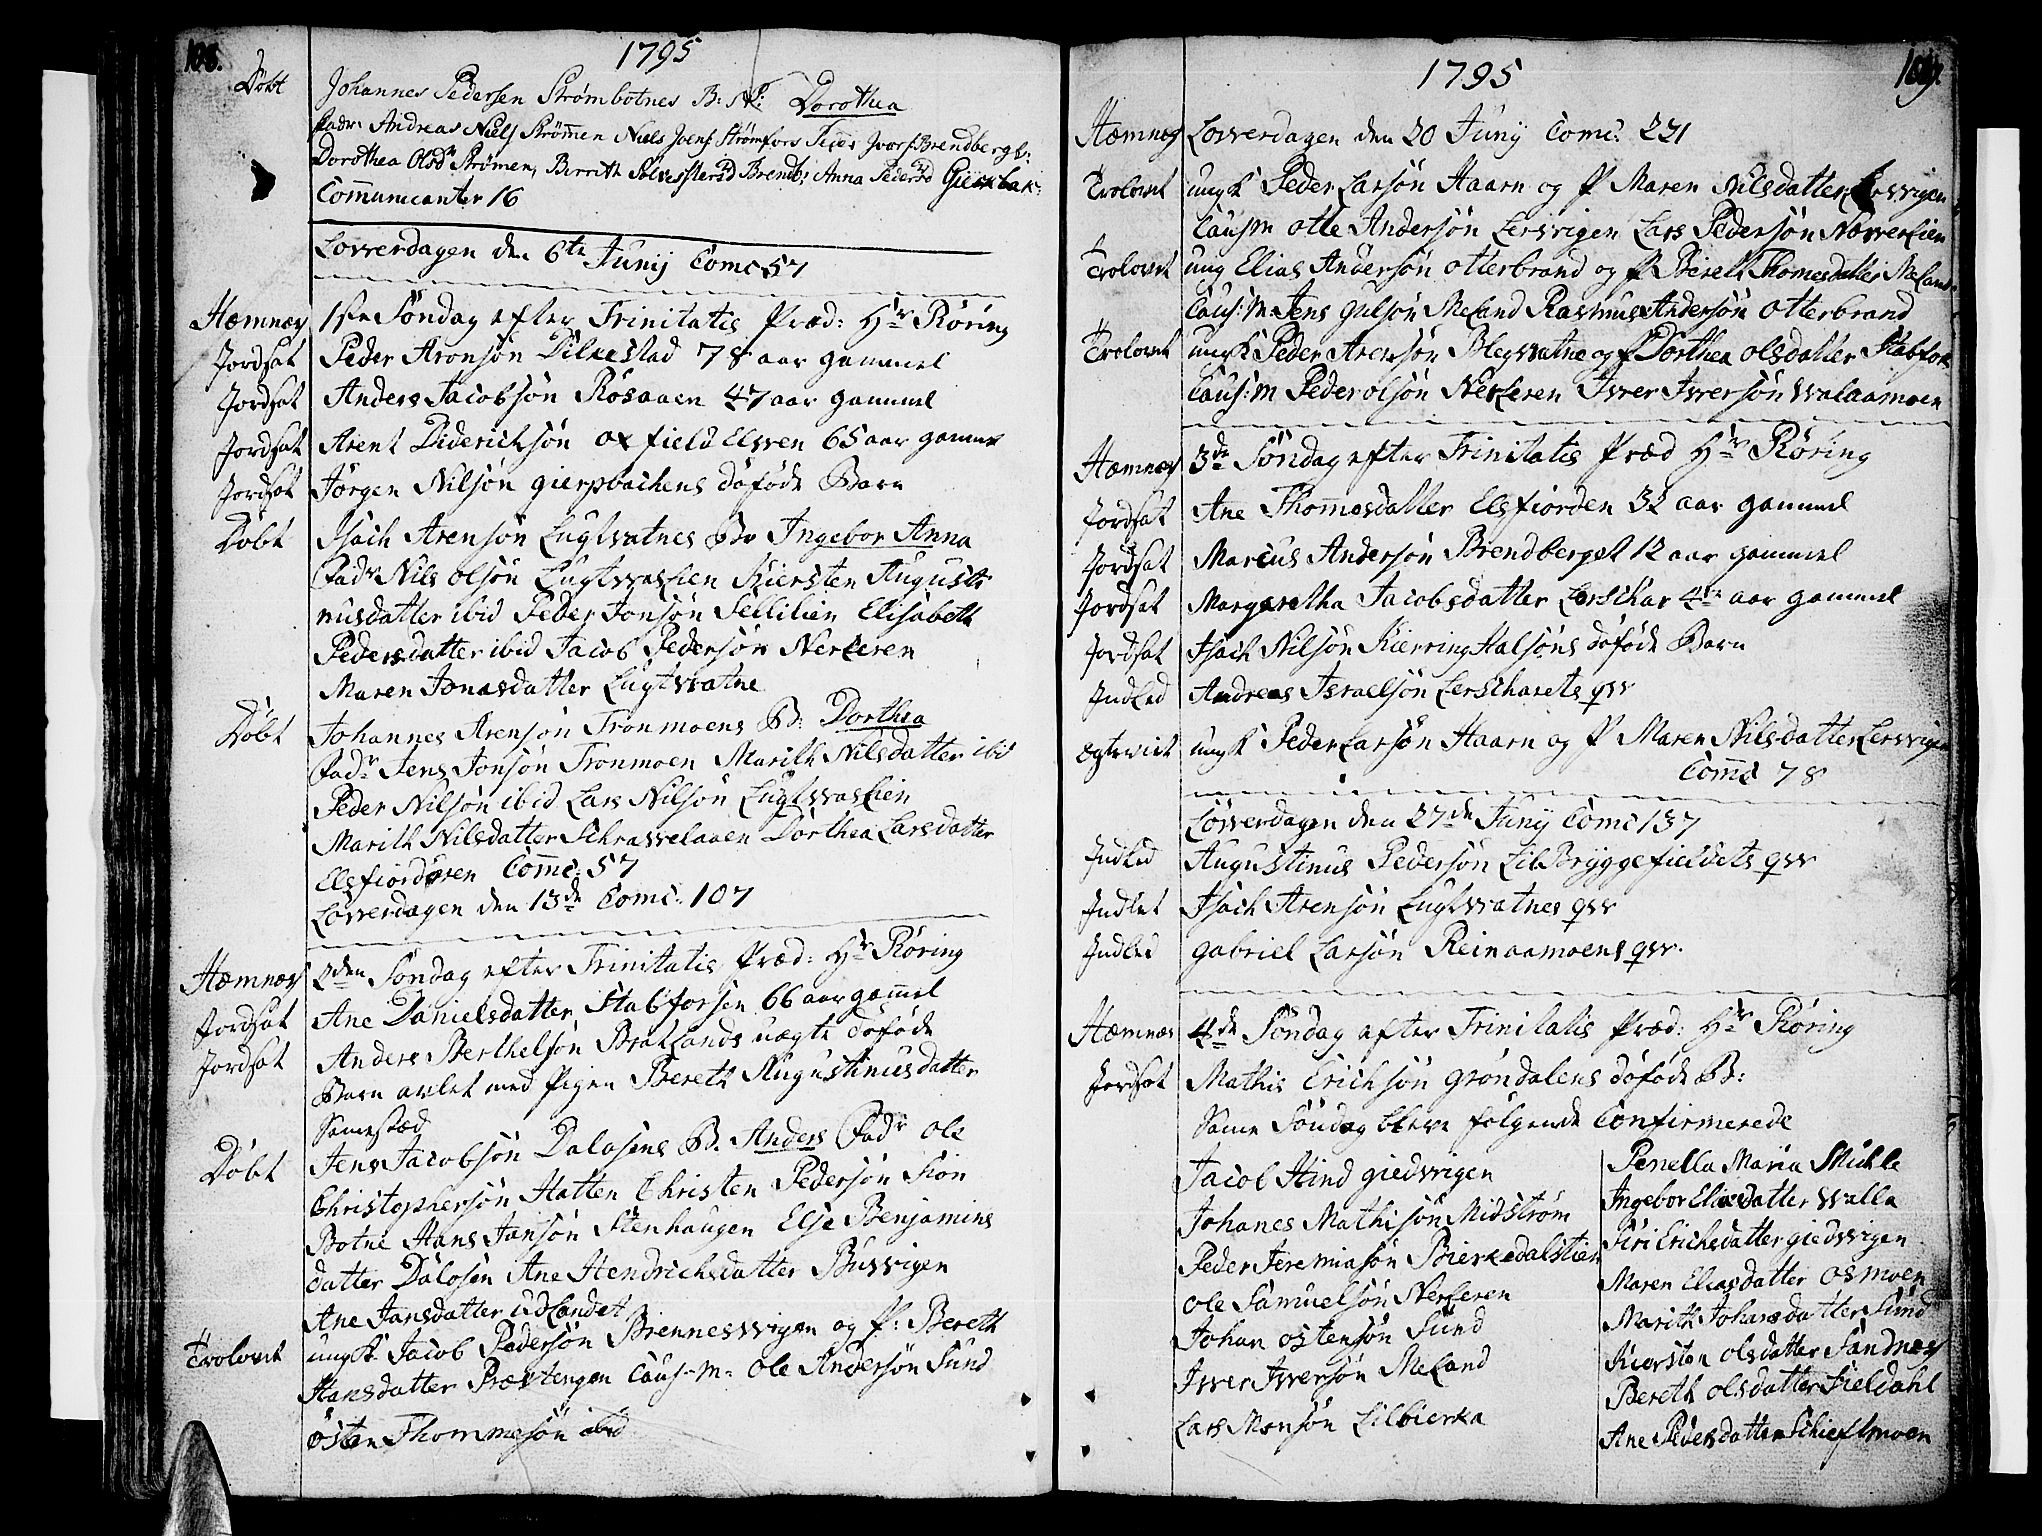 108.
1795
Döbt Johannes Pedersen Strømbotnes B: Dorothea
Fadr. Andreas Niels Strömmen Niels Jens: Strømfors Iver Brendbergh:
Dorothea Olsdr Strømen, Berrith Brendb; Anna Pedersd
Communicanter 16
Lovverdagen den 6te Junij Comc 57
Hæmnæs 1ste Söndag efter Trinitatis Præd: Hr Röring
Jordsat Peder Aronsön Dilkestad 78 aar gammel
Jordsat Anders Jacobsön Rösaaen 47 aar gammel
Jordsat Arent Diderichsön oxfield Elven 65 aar gamme
Jordsat Jörgen Nilsön gierpbachens döföde Barn
Döbt Isach Arensön Lugtvatnes Bv Ingebor Anna
Fadr Nils olsön Lugtvaslien Kiersten Augusti
nusdatter ibid Peder Jonsön Sellilien Elisabeth
Pedersdatter ibid Jacob Pedersön Nerleren
Maren Jonasdatter Lugtvatne
Döbt Johannes Arensön Tronmoens B: Dorthea
Fadr Jens Jonsön Tronmoen Marith Nilsdatter ibid
Peder Nilsön ibid Lars Nilsön Lugtvaslien
Marith Nilsdatter Schravvelaaen Dorthea Larsdatter
Elsfiordören Comc: 57
Lovverdagen den 13de Comc. 107
Hæmnæs 2den Söndag efter Trinitatis Præd: Hr Röring
Jordsat Ane Danielsdatter Stabforsen 66 aar gammel
Jordsat Anders Berthelsön Bratlands uægte döföde
Barn avlet med Pigen Bereth Augustinusdatter
Samestæd
Döbt Jens Jacobsön Dalosens B. Anders Fadr ole
Christophersön Hatten Christen Pedersön Sion
Botne Hans Jansön Stenhaugen Else Benjamins
datter Dalosen Ane Hendrichsdatter Busvigen
Ane Jansdatter Udlandet
Trolovet ungk. Jacob Pedersön Brennesvigen og P: Bereth
Hansdatter Præstengen Caus-M: ole Andersön Sund
östen Thommesön ibid
109.
1795
Hæmnæs Lovverdagen den 20 Junij Comc: 221
Trolovet ungk Peder Larsön Haarn og P Maren Nilsdatter Lervigen
Caus M otte Andersön Lervigen Lars Pedersön Næverlien
Trolovet ung Elias Andersön otterbrand og P Bereth Thomesdatter Meland
Caus: M. Jens gulsön Meland Rasmus Andersön otterbrand
Trolovet ungk Peder Arensön Blegvatne og P Dorthea olsdatter Stabfor
Caus: M Peder olsön Nerleren Iver Iversön walaamoen
Hæmnæs 3de Söndag efter Trinitatis Præd Hr Röring
Jordsat Ane Thommesdatter Elsfiorden 32 aar gammel
Jordsat Marcus Andersön Brendberget 12 aar gammel
Jordsat Margaretha Jacobsdatter Lerschar 4re aar gammel
Jordsat Isach Nilsön Kierringhalsöns döföde Barn
Indled Andreas Israelsön Lerscharets qvr
Egteviet ungk Peder Larsön Haarn og P Maren Nilsdatter Lervigen
Comc 78
Lovverdagen den 27de Junij Comc 137
Indled Augustinus Pedersön Lil Bryggefieldets qvr
Indlet Isach Arensön Lugtvatnes qvr
Indled gabriel Larsön Reinaamoens qvr.
Hæmnæs 4de Söndag efter Trinitatis Præd: Hr Röring
Jordsat Mathis Erichsön gröndalens döföde B:
Same Söndag bleve folgende Confirmerede
Jacob Hind giedvigen
Johanes Mathisön Midström
Peder Jeremiasön Bierkedalstien
ole Samuelsön Nerleren
Johan ostensön Sund
Iver Iversön Meland
Lars Monsön Lilbierka
Penella Maria Michle
Ingebor Eliasdatter walla
Siri Erichsdatter giedvigen
Maren Eliasdatter osmoen
Marith Johansdatter Sund
Kiersten olsdatter Sandnæs
Bereth olsdatter Fieldahl
Ane Pedersdatter Schieflmoen